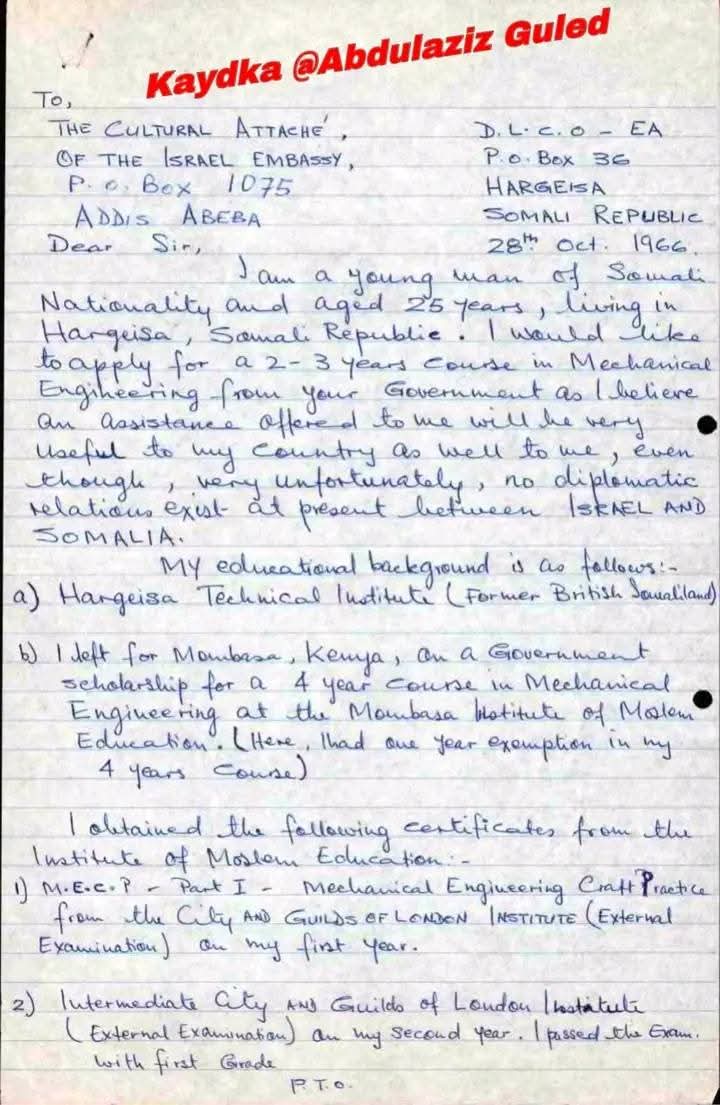 Kaydka @Abdulaziz Guled
To,
THE CULTURAL ATTACHÉ,
OF THE ISRAEL EMBASSY,
P.O. Box 1075
ADDIS ABEBA
D.L.C.O - EA
P.O. Box 36
HARGEISA
SOMALI REPUBLIC
28th Oct. 1966.
Dear Sir,
I am a young man of Somali
Nationality and aged 25 years, living in
Hargeisa, Somali Republic. I would like
to apply for a 2-3 years course in Mechanical
Engineering from your Government as I believe
an assistance offered to me will be very
useful to my country as well to me, even
though, very unfortunately, no diplomatic
relations exist at present between ISRAEL AND
SOMALIA.
MY educational background is as follows:-
a) Hargeisa Technical Institute (Former British Somaliland)
b) I left for Mombasa, Kenya, on a Government
scholarship for a 4 year course in Mechanical
Engineering at the Mombasa Institute of Moslem
Education. (Here, I had one year exemption in my
4 years course)
I obtained the following certificates from the
Institute of Moslem Education:-
1) M.E.C.P - Part I - Mechanical Engineering Craft Practice
from the City AND GUILDS OF LONDON INSTITUTE (External
Examination) on my first year.
2) Intermediate City AND Guilds of London Institute
(External Examination) on my second year. I passed the Exam.
with first Grade
P.T.O.